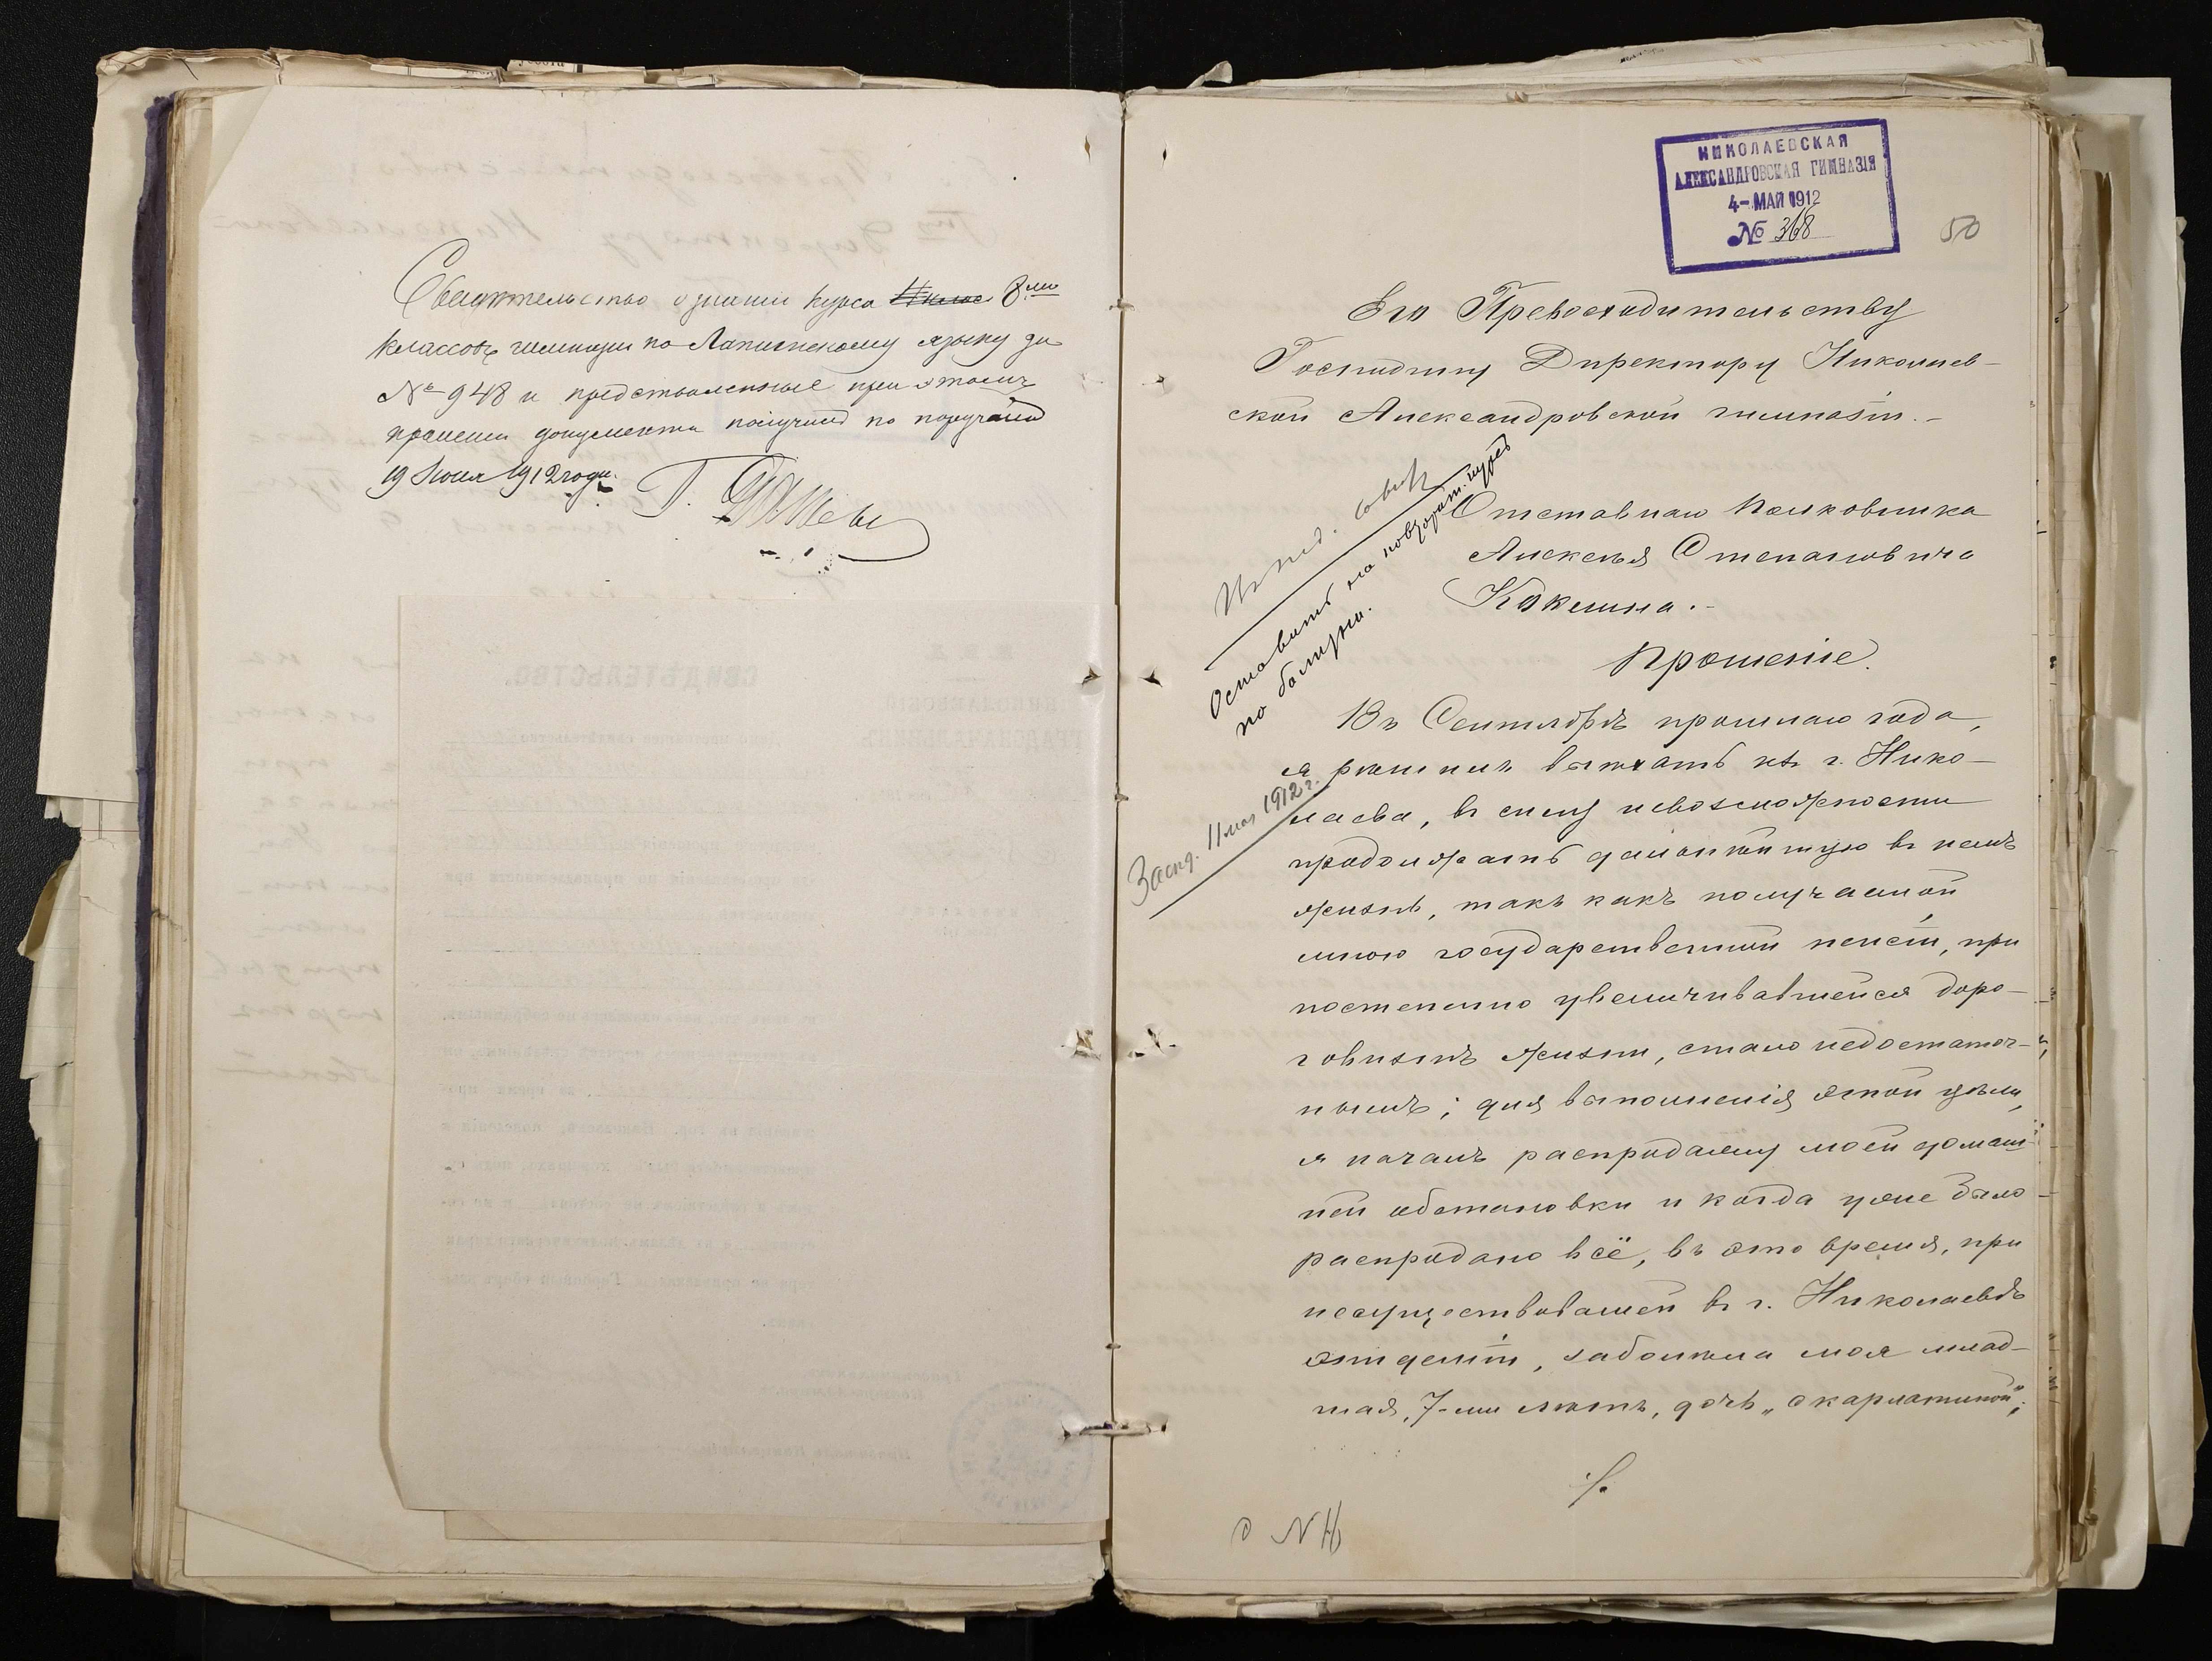 Свидетельство о знании курса 8ми
классовъ гимназии по Латинскому языку за
№ 948 и представленные при этомъ
прошении документы получилъ по
19 Июня 1912 года.
НИКОЛАЕВСКАЯ
АЛЕКСАНДРОВСКАЯ ГИМНАЗІЯ
4- МАЙ 1912
№ 368
50
Его Превосходительству
Господину Директору Николаев-
ской Александровской гимназіи.-
Отставнаго Полковника
Алексѣя Степановича
Кокешина.-
Прошеніе.
Въ пед. совѣтъ
Оставить на повторит. курсъ
по болѣзни.
Засѣд. 11 мая 1912 г.
Въ Сентябрѣ прошлаго года,
я рѣшилъ выѣхать изъ г. Нико-
лаева, въ силу невозможности
продолжать дальнѣйшую въ немъ
жизнь, такъ какъ получаемой
мною государственной пенсіи, при
постепенно увеличивавшейся доро-
говизнѣ жизни, стало недостаточ-
нымъ; для выполненія этой цѣли,
я началъ распродажу моей домаш-
ней обстановки и когда уже было
распродано всё, въ это время, при
несуществовавшей въ г. Николаевѣ
эпидеміи, заболѣла моя млад-
шая, 7-ми лѣтъ, дочь „скарлатиной“;
./.